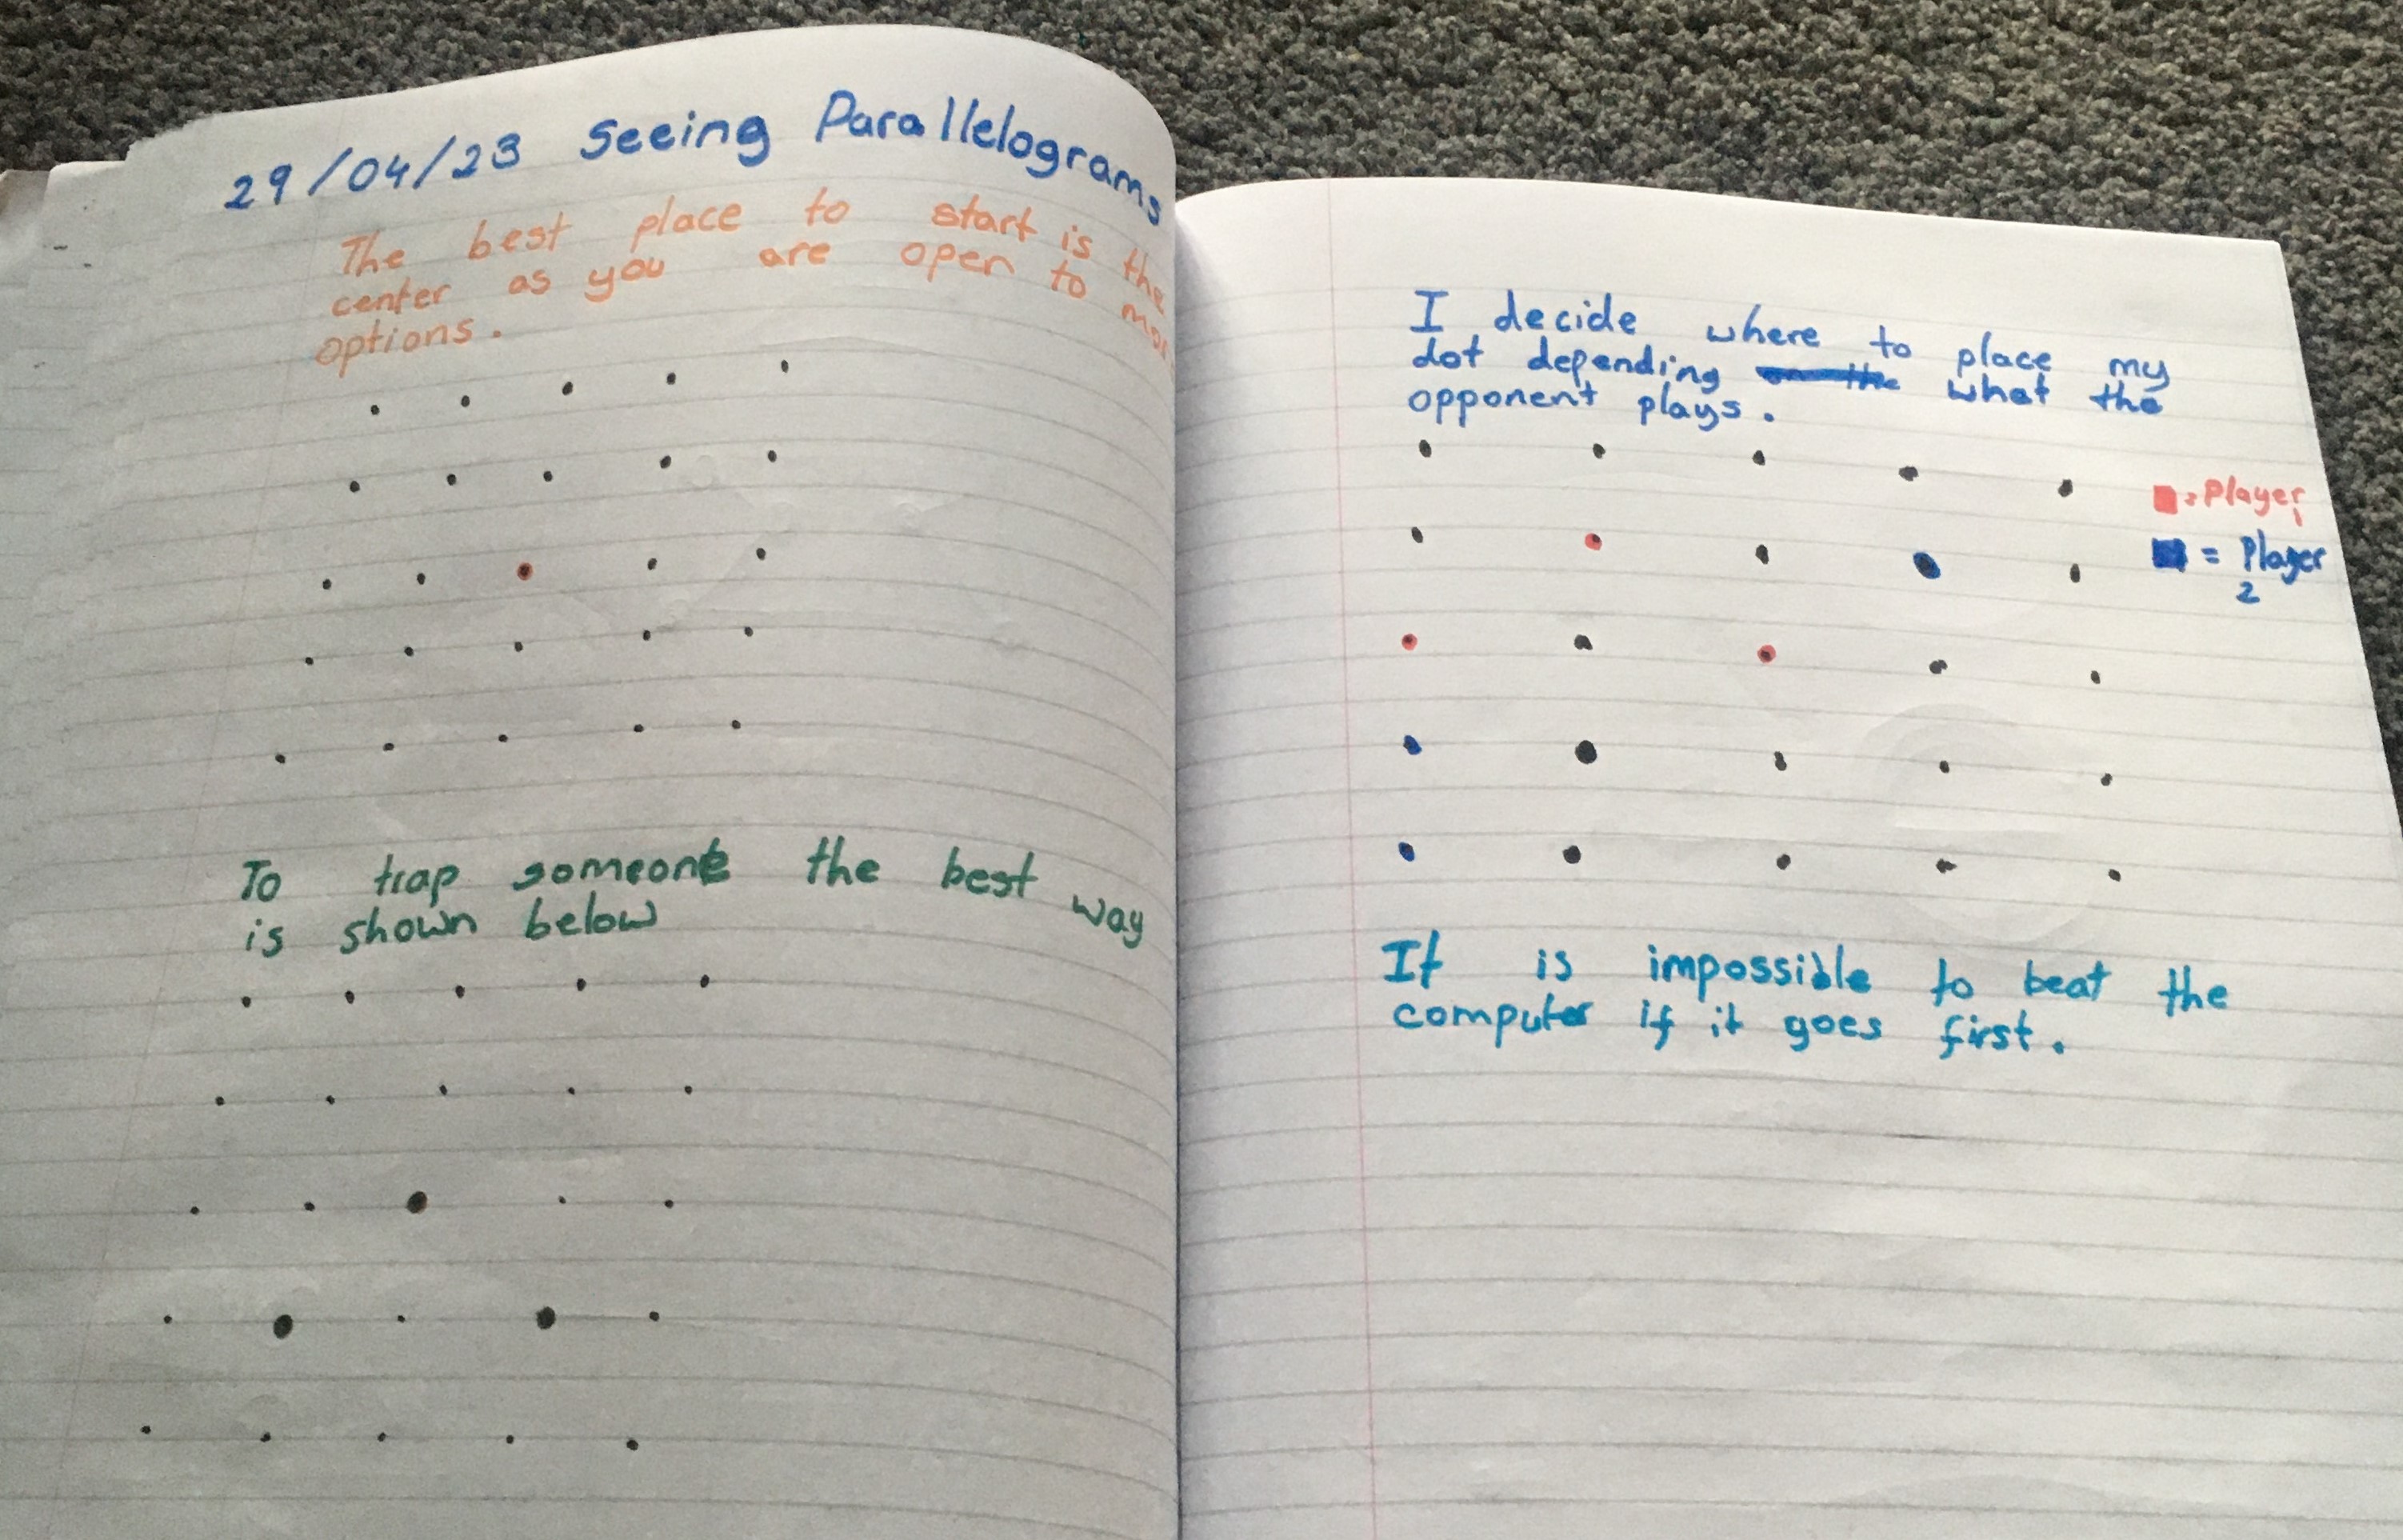 29/04/23 Seeing Parallelograms
The best place to start is the
center as you are open to mor
options.
To trap someone the best way
is shown below
I decide where to place my
dot depending what the
opponent plays.
= Player
1
= Player
2
It is impossible to beat the
computer if it goes first.